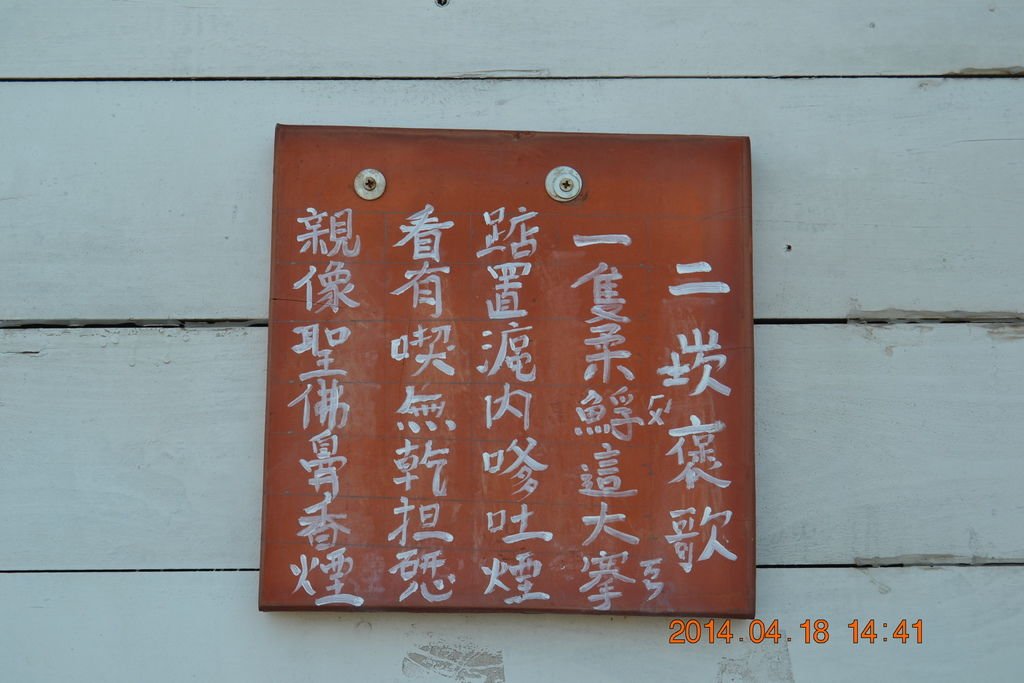 二崁褒歌
一隻柔鯙這大搴
踮置滬內嗲吐煙
看有喫無乾担
親像聖佛鼻香煙
2014.04.18 14:41